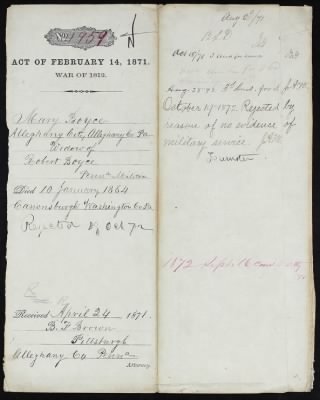 No. 1959
N
ACT OF FEBRUARY 14, 1871.
WAR OF 1812.
Mary Boyce
Alleghany City, Alleghany Co Pa
Widow of
Robert Boyce
Penna Militia
Died 10 January 1864
Canonsburgh Washington Co Pa
Rejected Oct 72
Received April 24 1871.
B. F. Brown
Pittsburgh
Alleghany Co Penna
Attorney.
October 19 1872 Rejected by
reason of no evidence of
military service.
1872 Sept 16